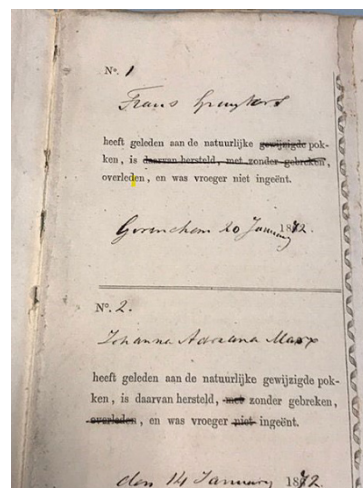 Nº. 1
Frans
heeft geleden aan de natuurlijke gewijzigde pok-
ken, is daarvan hersteld, met zonder gebreken,
overleden, en was vroeger niet ingeënt.
Gorinchem 20 January 1872.
Nº. 2.
Johanna Adriana Marx
heeft geleden aan de natuurlijke gewijzigde pok-
ken, is daarvan hersteld, met zonder gebreken,
overleden, en was vroeger niet ingeënt.
den 14 January 1872.